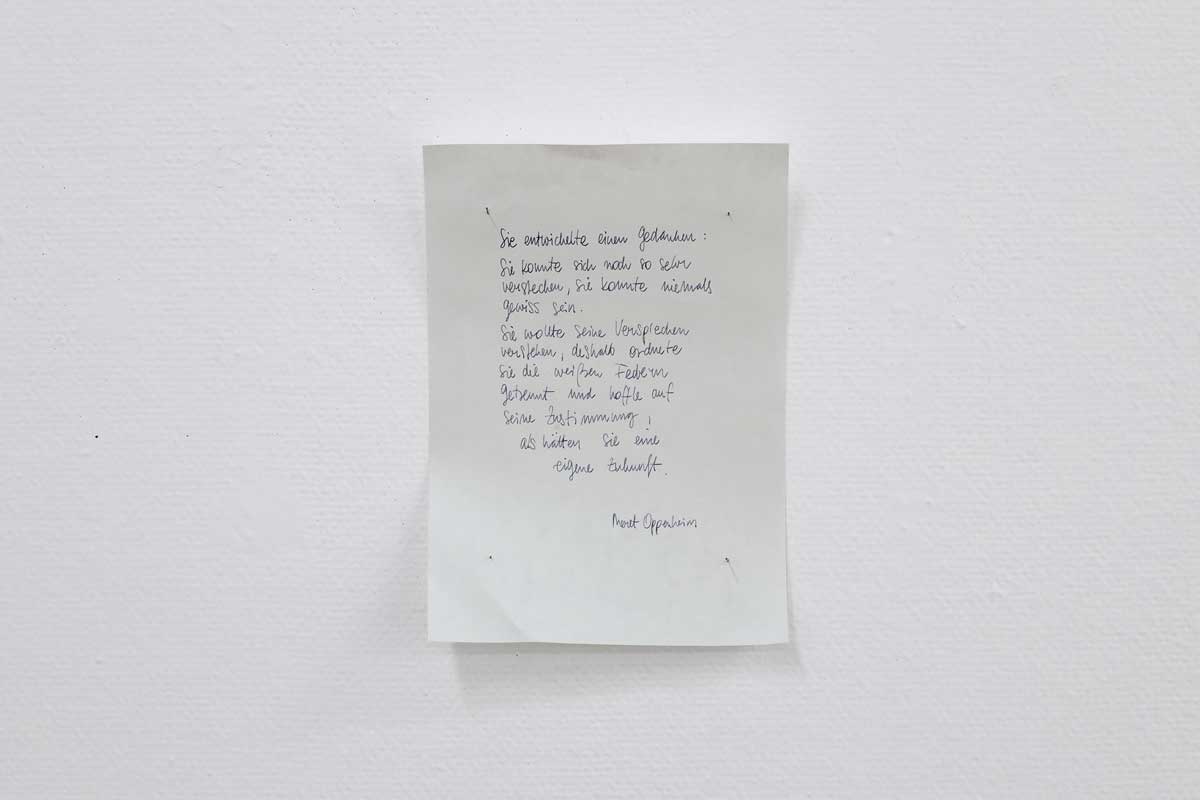 Sie entwickelte einen Gedanken:
Sie konnte sich noch so sehr
verstecken, sie konnte niemals
gewiss sein.
Sie wollte seine Versprechen
verstehen, deshalb ordnete
sie die weißen Federn
getrennt und hoffte auf
seine Zustimmung,
als hätten sie eine
eigene Zukunft.
Meret Oppenheim